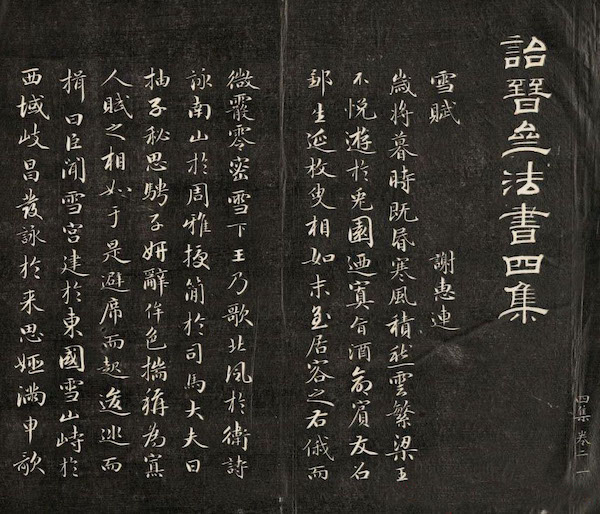 詒晉亝法書四集
雪賦 謝惠連
歲將暮時既昏寒風積愁雲繁梁王
不悅遊於兔園迺寘旨酒命賓友召
鄒生延枚叟相如末至居客之右俄而
微霰零密雪下王乃歌北風於衛詩
詠南山於周雅授簡於司馬大夫曰
抽子秘思騁子妍辭侔色揣稱為寡
人賦之相如于是避席而起逡巡而
揖曰臣聞雪宮建於東國雪山峙於
西域岐昌發詠於来思姬滿申歌
四集 卷二 一